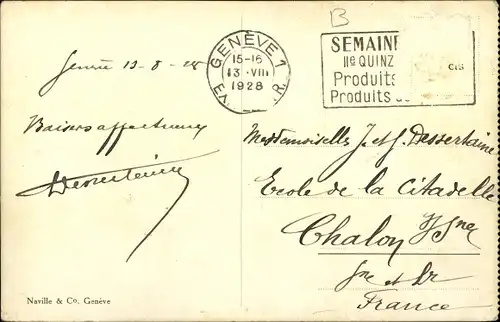 B
GENÈVE 1
15-16
13.VIII
1928
SEMAINE
IIe QUINZ
Produits
Produits
Genève 13-8-28
Baisers affectueux
Dessertaine
Mesdemoiselles J. et J. Dessertaine
Ecole de la Citadelle
Chalon s/Sne
Sne et Lr
France
Naville & Co. Genève